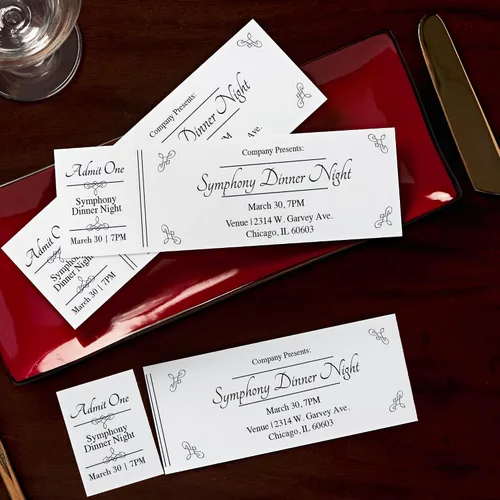 Company Presents:
Dinner Night
March 30, 7PM
Venue
Admit One
Symphony
Dinner Night
March 30 | 7PM
Company Presents:
Symphony Dinner Night
March 30, 7PM
Venue | 2314 W. Garvey Ave.
Chicago, IL 60603
Admit One
Symphony
Dinner Night
March 30 | 7PM
Admit One
Symphony
Dinner Night
March 30 | 7PM
Company Presents:
Symphony Dinner Night
March 30, 7PM
Venue | 2314 W. Garvey Ave.
Chicago, IL 60603